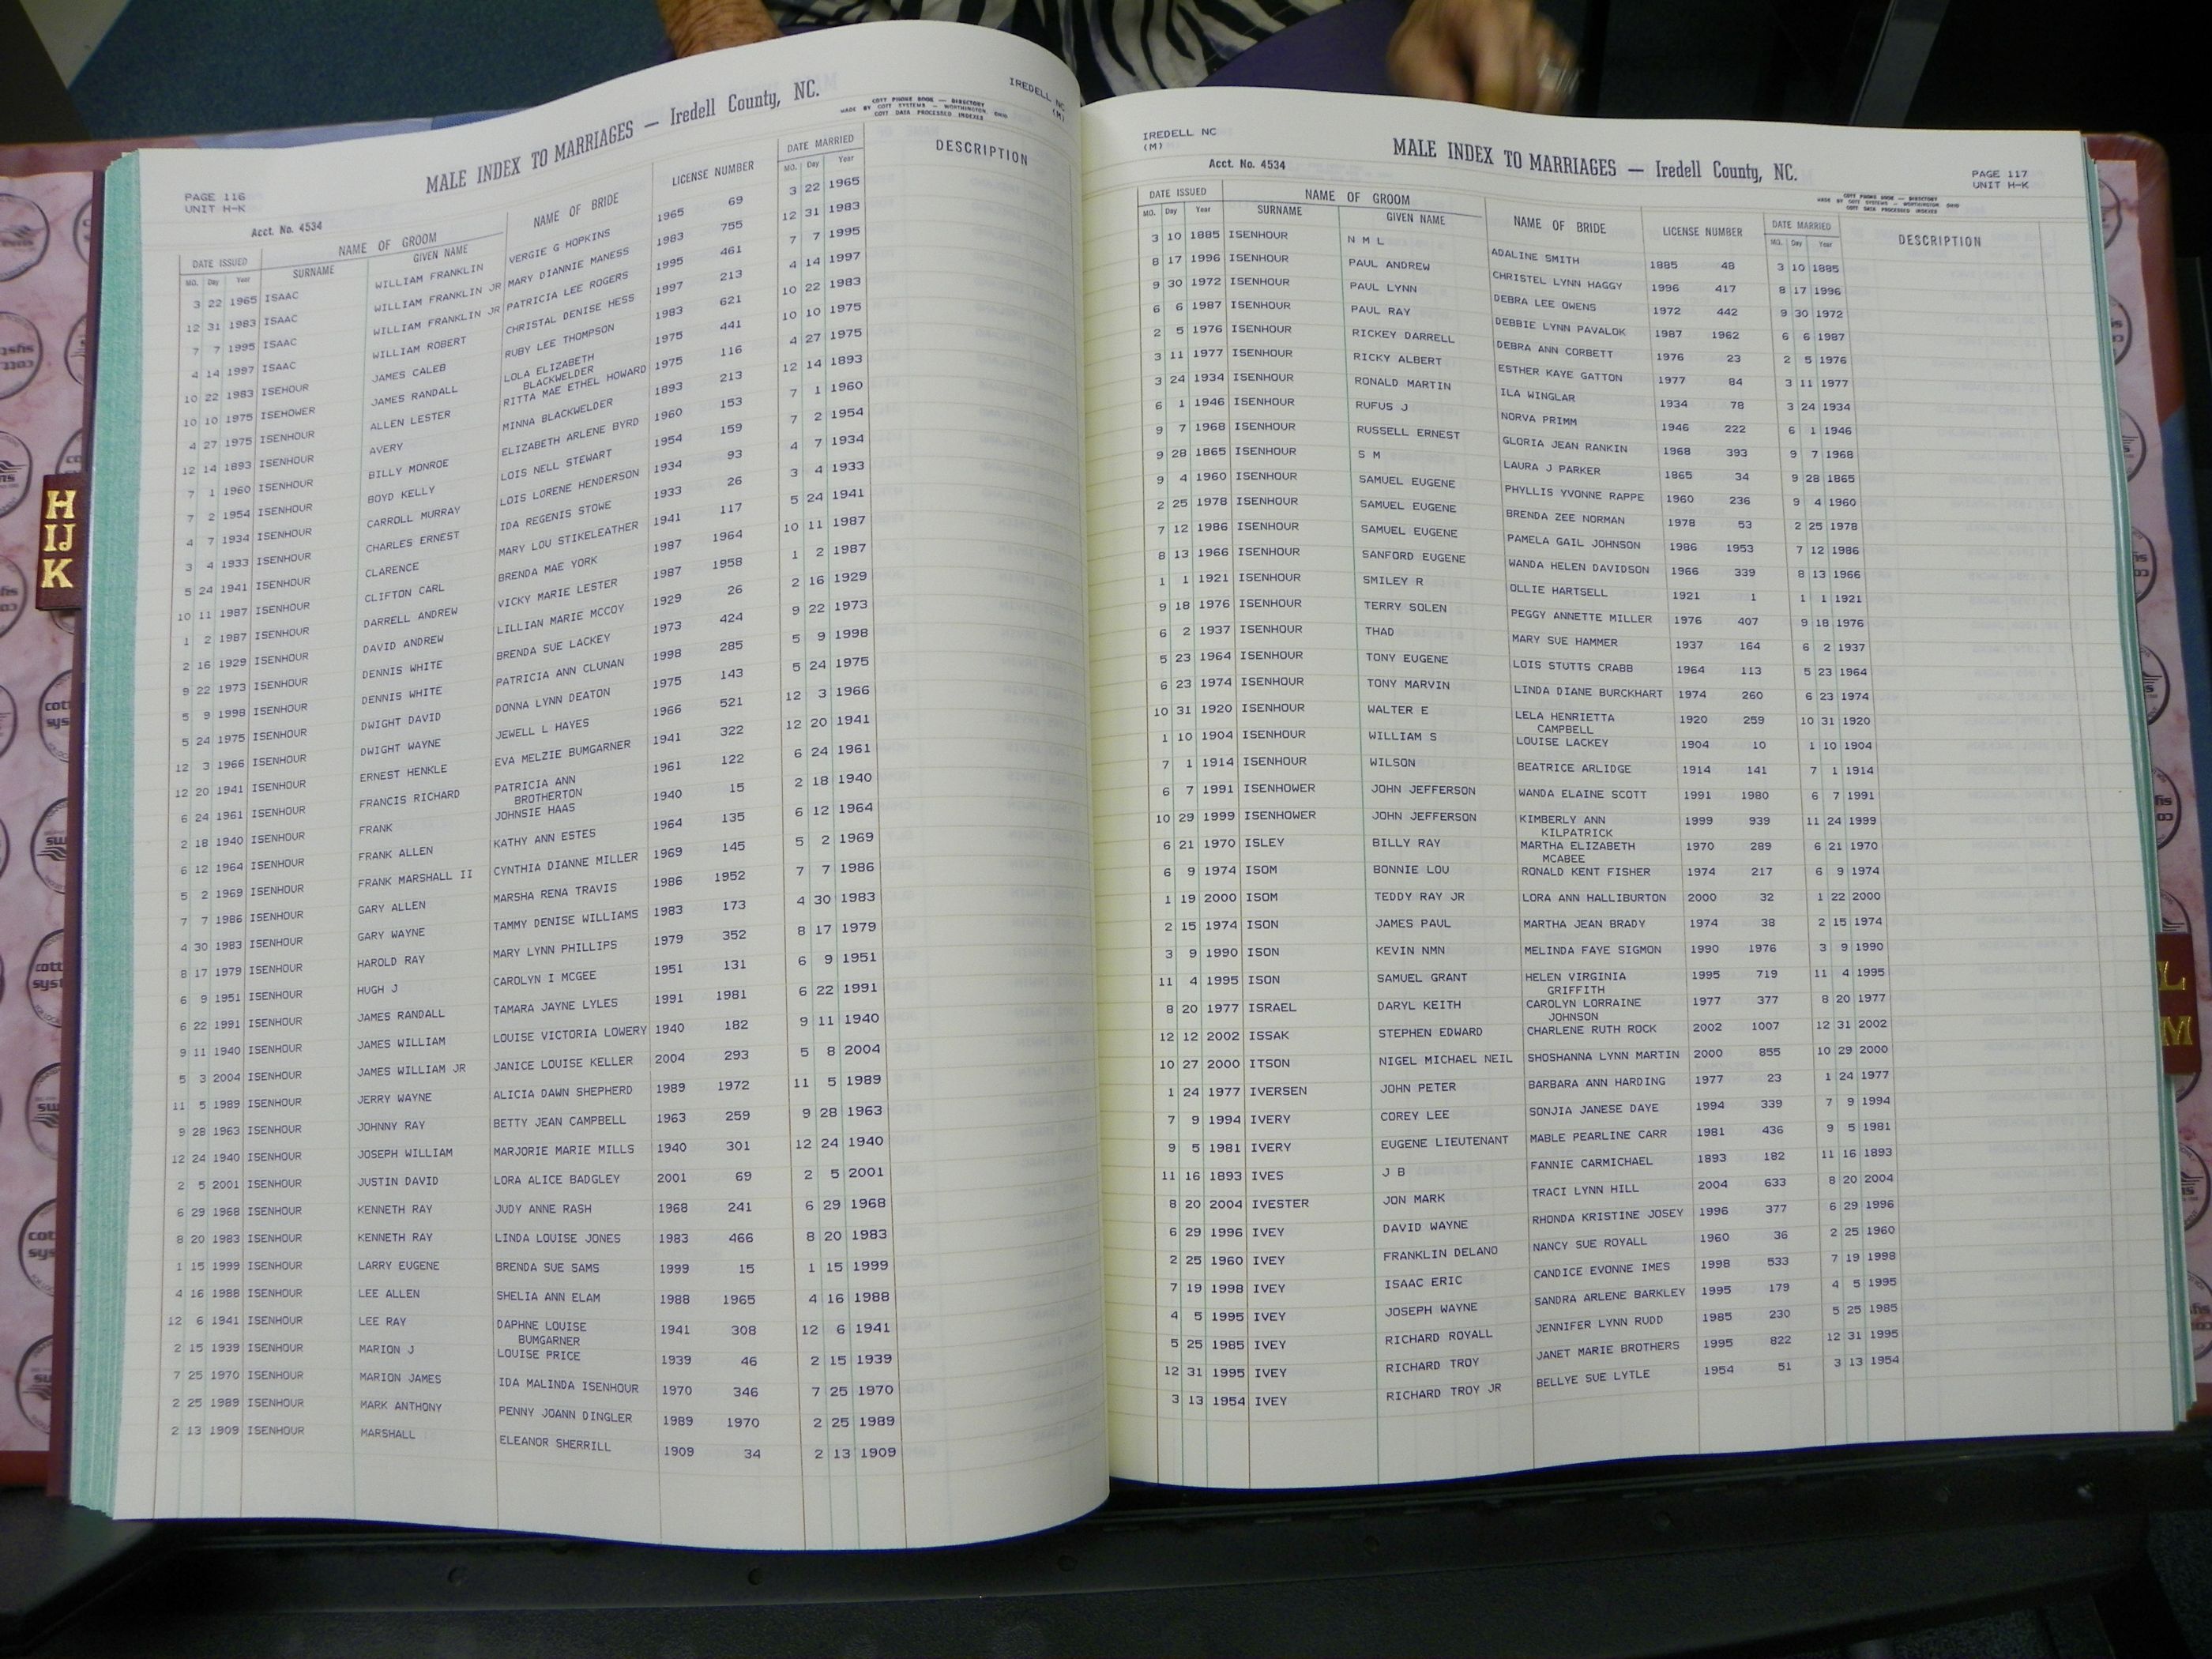 PAGE 116
UNIT H-K
MALE INDEX TO MARRIAGES — Iredell County, NC.
COTT PHONE BOOK — DIRECTORY
MADE BY COTT SYSTEMS — WORTHINGTON OHIO
COTT DATA PROCESSED INDEXES
IREDELL NC
(M)
Acct. No. 4534
DATE ISSUED NAME OF GROOM NAME OF BRIDE LICENSE NUMBER DATE MARRIED DESCRIPTION
MO. Day Year SURNAME GIVEN NAME MO. Day Year
3 22 1965 ISAAC WILLIAM FRANKLIN VERGIE G HOPKINS 1965 69 3 22 1965
12 31 1983 ISAAC WILLIAM FRANKLIN JR MARY DIANNIE MANESS 1983 755 12 31 1983
7 7 1995 ISAAC WILLIAM FRANKLIN JR PATRICIA LEE ROGERS 1995 461 7 7 1995
4 14 1997 ISAAC WILLIAM ROBERT CHRISTAL DENISE HESS 1997 213 4 14 1997
10 22 1983 ISEHOUR JAMES CALEB RUBY LEE THOMPSON 1983 621 10 22 1983
10 10 1975 ISEHOWER JAMES RANDALL LOLA ELIZABETH 1975 441 10 10 1975
BLACKWELDER
4 27 1975 ISENHOUR ALLEN LESTER RITTA MAE ETHEL HOWARD 1975 116 4 27 1975
12 14 1893 ISENHOUR AVERY MINNA BLACKWELDER 1893 213 12 14 1893
7 1 1960 ISENHOUR BILLY MONROE ELIZABETH ARLENE BYRD 1960 153 7 1 1960
7 2 1954 ISENHOUR BOYD KELLY LOIS NELL STEWART 1954 159 7 2 1954
4 7 1934 ISENHOUR CARROLL MURRAY LOIS LORENE HENDERSON 1934 93 4 7 1934
3 4 1933 ISENHOUR CHARLES ERNEST IDA REGENIS STOWE 1933 26 3 4 1933
5 24 1941 ISENHOUR CLARENCE MARY LOU STIKELEATHER 1941 117 5 24 1941
10 11 1987 ISENHOUR CLIFTON CARL BRENDA MAE YORK 1987 1964 10 11 1987
1 2 1987 ISENHOUR DARRELL ANDREW VICKY MARIE LESTER 1987 1958 1 2 1987
2 16 1929 ISENHOUR DAVID ANDREW LILLIAN MARIE MCCOY 1929 26 2 16 1929
9 22 1973 ISENHOUR DENNIS WHITE BRENDA SUE LACKEY 1973 424 9 22 1973
5 9 1998 ISENHOUR DENNIS WHITE PATRICIA ANN CLUNAN 1998 285 5 9 1998
5 24 1975 ISENHOUR DWIGHT DAVID DONNA LYNN DEATON 1975 143 5 24 1975
12 3 1966 ISENHOUR DWIGHT WAYNE JEWELL L HAYES 1966 521 12 3 1966
12 20 1941 ISENHOUR ERNEST HENKLE EVA MELZIE BUMGARNER 1941 322 12 20 1941
6 24 1961 ISENHOUR FRANCIS RICHARD PATRICIA ANN 1961 122 6 24 1961
BROTHERTON
2 18 1940 ISENHOUR FRANK JOHNSIE HAAS 1940 15 2 18 1940
6 12 1964 ISENHOUR FRANK ALLEN KATHY ANN ESTES 1964 135 6 12 1964
5 2 1969 ISENHOUR FRANK MARSHALL II CYNTHIA DIANNE MILLER 1969 145 5 2 1969
7 7 1986 ISENHOUR GARY ALLEN MARSHA RENA TRAVIS 1986 1952 7 7 1986
4 30 1983 ISENHOUR GARY WAYNE TAMMY DENISE WILLIAMS 1983 173 4 30 1983
8 17 1979 ISENHOUR HAROLD RAY MARY LYNN PHILLIPS 1979 352 8 17 1979
6 9 1951 ISENHOUR HUGH J CAROLYN I MCGEE 1951 131 6 9 1951
6 22 1991 ISENHOUR JAMES RANDALL TAMARA JAYNE LYLES 1991 1981 6 22 1991
9 11 1940 ISENHOUR JAMES WILLIAM LOUISE VICTORIA LOWERY 1940 182 9 11 1940
5 3 2004 ISENHOUR JAMES WILLIAM JR JANICE LOUISE KELLER 2004 293 5 8 2004
11 5 1989 ISENHOUR JERRY WAYNE ALICIA DAWN SHEPHERD 1989 1972 11 5 1989
9 28 1963 ISENHOUR JOHNNY RAY BETTY JEAN CAMPBELL 1963 259 9 28 1963
12 24 1940 ISENHOUR JOSEPH WILLIAM MARJORIE MARIE MILLS 1940 301 12 24 1940
2 5 2001 ISENHOUR JUSTIN DAVID LORA ALICE BADGLEY 2001 69 2 5 2001
6 29 1968 ISENHOUR KENNETH RAY JUDY ANNE RASH 1968 241 6 29 1968
8 20 1983 ISENHOUR KENNETH RAY LINDA LOUISE JONES 1983 466 8 20 1983
1 15 1999 ISENHOUR LARRY EUGENE BRENDA SUE SAMS 1999 15 1 15 1999
4 16 1988 ISENHOUR LEE ALLEN SHELIA ANN ELAM 1988 1965 4 16 1988
12 6 1941 ISENHOUR LEE RAY DAPHNE LOUISE 1941 308 12 6 1941
BUMGARNER
2 15 1939 ISENHOUR MARION J LOUISE PRICE 1939 46 2 15 1939
7 25 1970 ISENHOUR MARION JAMES IDA MALINDA ISENHOUR 1970 346 7 25 1970
2 25 1989 ISENHOUR MARK ANTHONY PENNY JOANN DINGLER 1989 1970 2 25 1989
2 13 1909 ISENHOUR MARSHALL ELEANOR SHERRILL 1909 34 2 13 1909
IREDELL NC
(M)
Acct. No. 4534
MALE INDEX TO MARRIAGES — Iredell County, NC.
PAGE 117
UNIT H-K
COTT PHONE BOOK — DIRECTORY
MADE BY COTT SYSTEMS — WORTHINGTON OHIO
COTT DATA PROCESSED INDEXES
DATE ISSUED NAME OF GROOM NAME OF BRIDE LICENSE NUMBER DATE MARRIED DESCRIPTION
MO. Day Year SURNAME GIVEN NAME MO. Day Year
3 10 1885 ISENHOUR N M L ADALINE SMITH 1885 48 3 10 1885
8 17 1996 ISENHOUR PAUL ANDREW CHRISTEL LYNN HAGGY 1996 417 8 17 1996
9 30 1972 ISENHOUR PAUL LYNN DEBRA LEE OWENS 1972 442 9 30 1972
6 6 1987 ISENHOUR PAUL RAY DEBBIE LYNN PAVALOK 1987 1962 6 6 1987
2 5 1976 ISENHOUR RICKEY DARRELL DEBRA ANN CORBETT 1976 23 2 5 1976
3 11 1977 ISENHOUR RICKY ALBERT ESTHER KAYE GATTON 1977 84 3 11 1977
3 24 1934 ISENHOUR RONALD MARTIN ILA WINGLAR 1934 78 3 24 1934
6 1 1946 ISENHOUR RUFUS J NORVA PRIMM 1946 222 6 1 1946
9 7 1968 ISENHOUR RUSSELL ERNEST GLORIA JEAN RANKIN 1968 393 9 7 1968
9 28 1865 ISENHOUR S M LAURA J PARKER 1865 34 9 28 1865
9 4 1960 ISENHOUR SAMUEL EUGENE PHYLLIS YVONNE RAPPE 1960 236 9 4 1960
2 25 1978 ISENHOUR SAMUEL EUGENE BRENDA ZEE NORMAN 1978 53 2 25 1978
7 12 1986 ISENHOUR SAMUEL EUGENE PAMELA GAIL JOHNSON 1986 1953 7 12 1986
8 13 1966 ISENHOUR SANFORD EUGENE WANDA HELEN DAVIDSON 1966 339 8 13 1966
1 1 1921 ISENHOUR SMILEY R OLLIE HARTSELL 1921 1 1 1 1921
9 18 1976 ISENHOUR TERRY SOLEN PEGGY ANNETTE MILLER 1976 407 9 18 1976
6 2 1937 ISENHOUR THAD MARY SUE HAMMER 1937 164 6 2 1937
5 23 1964 ISENHOUR TONY EUGENE LOIS STUTTS CRABB 1964 113 5 23 1964
6 23 1974 ISENHOUR TONY MARVIN LINDA DIANE BURCKHART 1974 260 6 23 1974
10 31 1920 ISENHOUR WALTER E LELA HENRIETTA 1920 259 10 31 1920
CAMPBELL
1 10 1904 ISENHOUR WILLIAM S LOUISE LACKEY 1904 10 1 10 1904
7 1 1914 ISENHOUR WILSON BEATRICE ARLIDGE 1914 141 7 1 1914
6 7 1991 ISENHOWER JOHN JEFFERSON WANDA ELAINE SCOTT 1991 1980 6 7 1991
10 29 1999 ISENHOWER JOHN JEFFERSON KIMBERLY ANN 1999 939 11 24 1999
KILPATRICK
6 21 1970 ISLEY BILLY RAY MARTHA ELIZABETH 1970 289 6 21 1970
MCABEE
6 9 1974 ISOM BONNIE LOU RONALD KENT FISHER 1974 217 6 9 1974
1 19 2000 ISOM TEDDY RAY JR LORA ANN HALLIBURTON 2000 32 1 22 2000
2 15 1974 ISON JAMES PAUL MARTHA JEAN BRADY 1974 38 2 15 1974
3 9 1990 ISON KEVIN NMN MELINDA FAYE SIGMON 1990 1976 3 9 1990
11 4 1995 ISON SAMUEL GRANT HELEN VIRGINIA 1995 719 11 4 1995
GRIFFITH
8 20 1977 ISRAEL DARYL KEITH CAROLYN LORRAINE 1977 377 8 20 1977
JOHNSON
12 12 2002 ISSAK STEPHEN EDWARD CHARLENE RUTH ROCK 2002 1007 12 31 2002
10 27 2000 ITSON NIGEL MICHAEL NEIL SHOSHANNA LYNN MARTIN 2000 855 10 29 2000
1 24 1977 IVERSEN JOHN PETER BARBARA ANN HARDING 1977 23 1 24 1977
7 9 1994 IVERY COREY LEE SONJIA JANESE DAYE 1994 339 7 9 1994
9 5 1981 IVERY EUGENE LIEUTENANT MABLE PEARLINE CARR 1981 436 9 5 1981
11 16 1893 IVES J B FANNIE CARMICHAEL 1893 182 11 16 1893
8 20 2004 IVESTER JON MARK TRACI LYNN HILL 2004 633 8 20 2004
6 29 1996 IVEY DAVID WAYNE RHONDA KRISTINE JOSEY 1996 377 6 29 1996
2 25 1960 IVEY FRANKLIN DELANO NANCY SUE ROYALL 1960 36 2 25 1960
7 19 1998 IVEY ISAAC ERIC CANDICE EVONNE IMES 1998 533 7 19 1998
4 5 1995 IVEY JOSEPH WAYNE SANDRA ARLENE BARKLEY 1995 179 4 5 1995
5 25 1985 IVEY RICHARD ROYALL JENNIFER LYNN RUDD 1985 230 5 25 1985
12 31 1995 IVEY RICHARD TROY JANET MARIE BROTHERS 1995 822 12 31 1995
3 13 1954 IVEY RICHARD TROY JR BELLYE SUE LYTLE 1954 51 3 13 1954
H
IJ
K
L
M